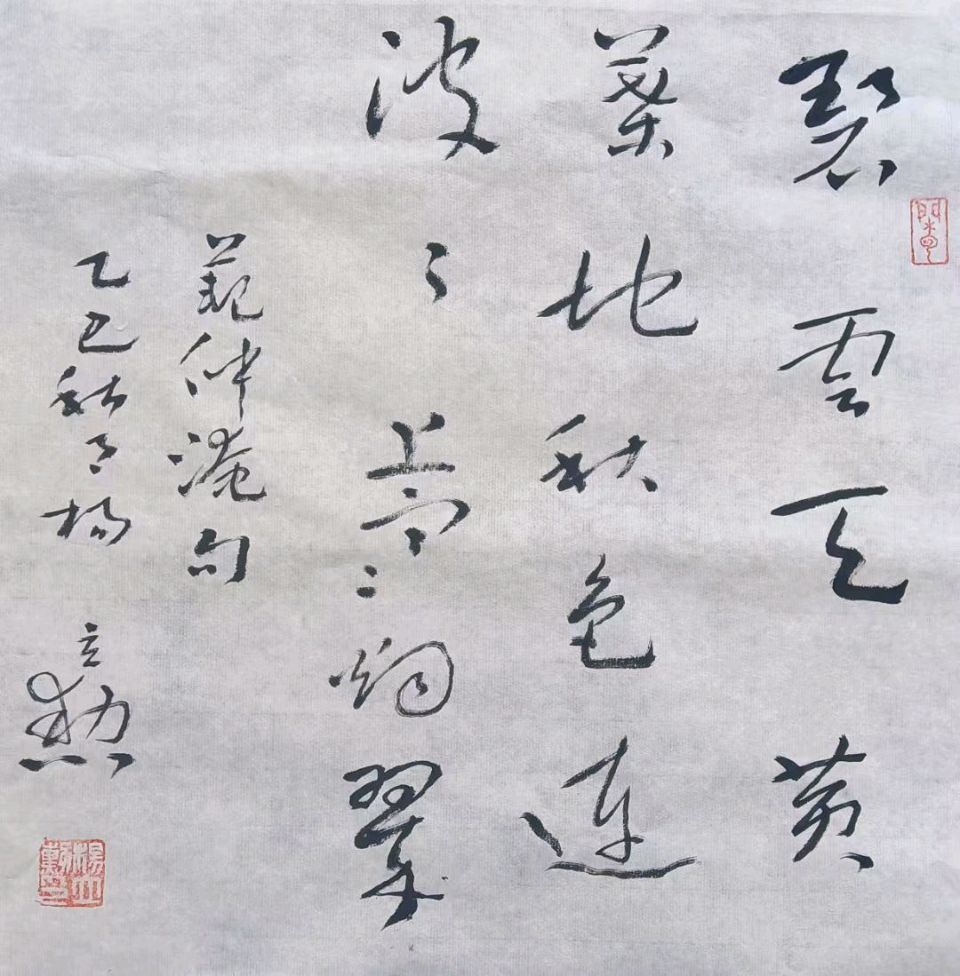 碧雲天黄
葉地秋色連
波〻上寒烟翠
范仲淹句
乙巳秋月楊立勳